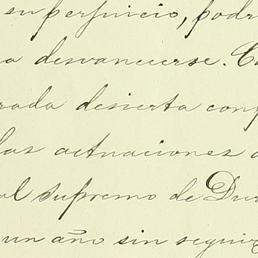 en perjuicio, podr
a desvanecerse. C
rada desierta con
las actuaciones
al Supremo de Du
un año sin seguir